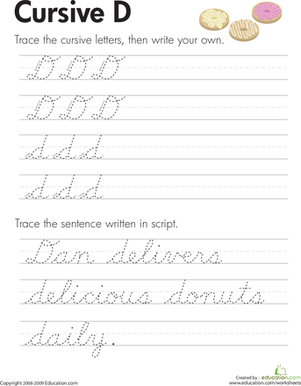 Cursive D
Trace the cursive letters, then write your own.
D D D
D D D
d d d
d d d
Trace the sentence written in script.
Dan delivers
delicious donuts
daily.
Copyright 2008-2009 Education.com
Created by :
education.com
www.education.com/worksheets